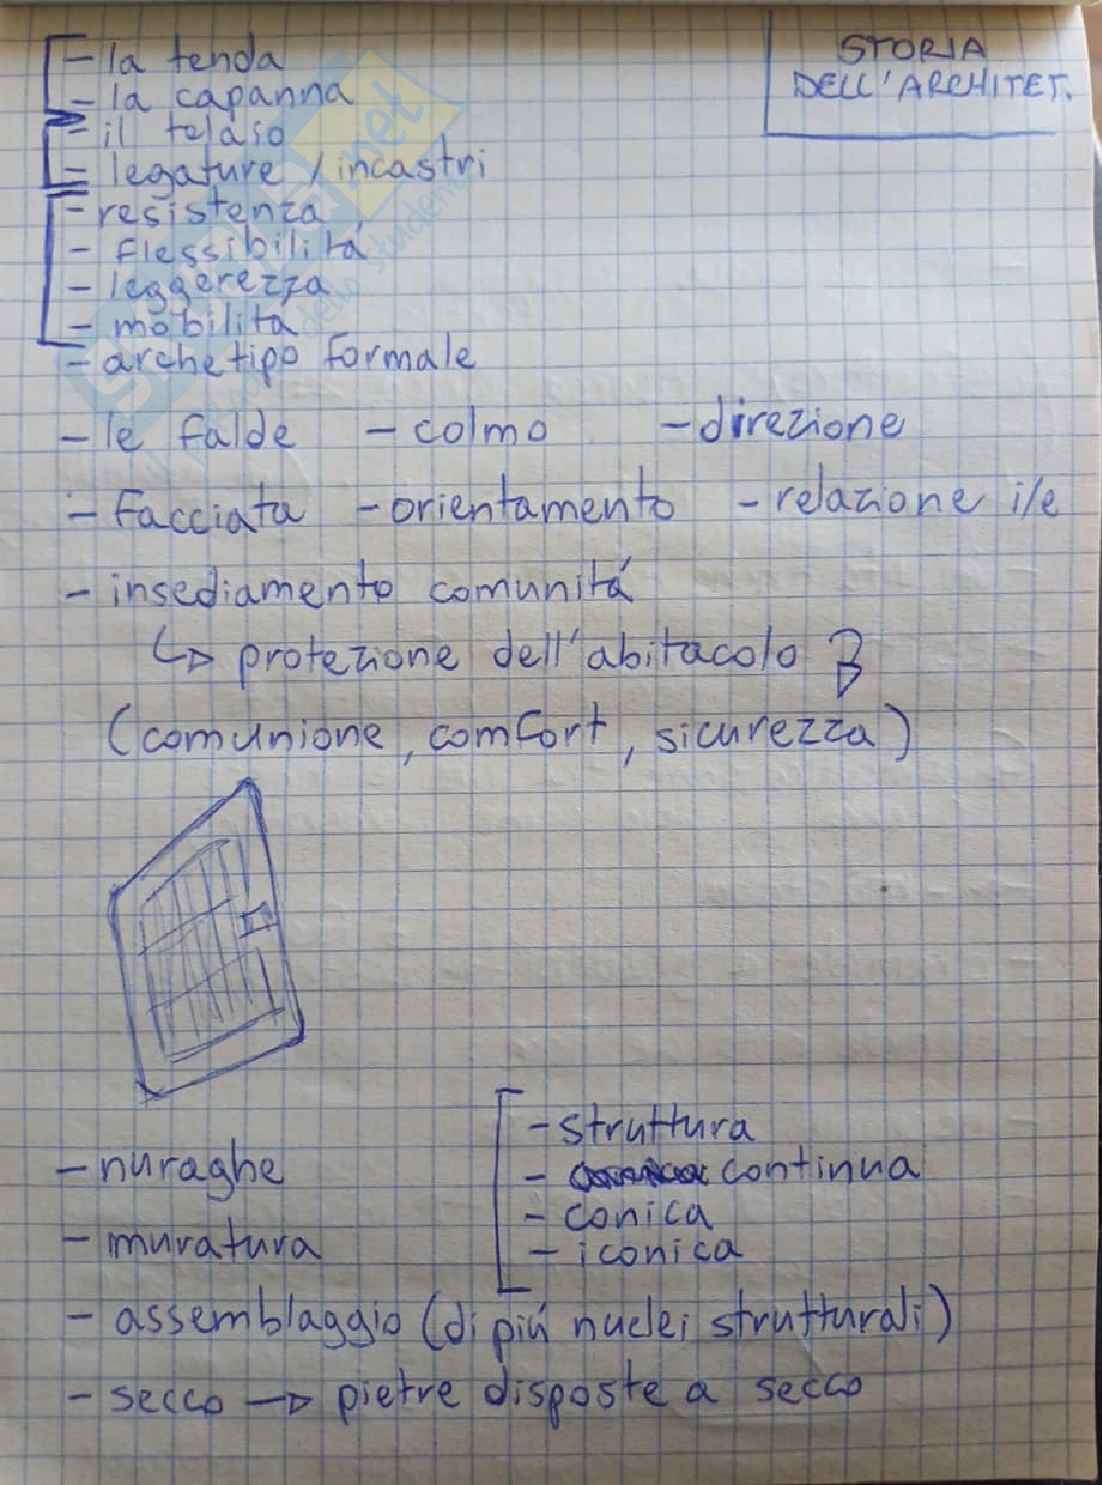 STORIA
DELL'ARCHITET.
- la tenda
- la capanna
- il telaio
- legature / incastri
- resistenza
- flessibilitá
- leggerezza
- mobilitá
- archetipo formale
- le falde - colmo - direzione
- facciata - orientamento - relazione i/e
- insediamento comunitá
↳ protezione dell'abitacolo
(comunione, comfort, sicurezza)
- struttura
- continua
- conica
- iconica
- nuraghe
- muratura
- assemblaggio (di piú nuclei strutturali)
- secco → pietre disposte a secco